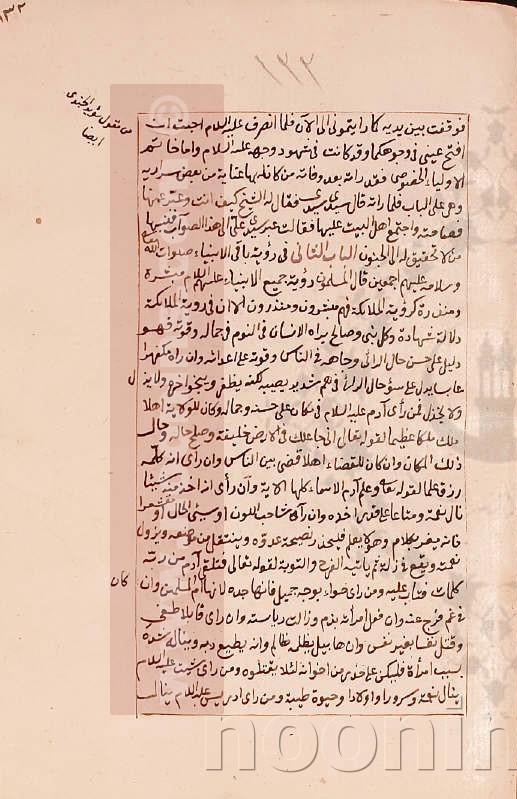 ١٣٢
١٣٢
من منقول
ايضا
فوقفت بين يديه كما داينه مولى الى الآن فلما انصرف عليه السلام احببت ان
افتح عيني في وجوهكما وقد كانت في شهود وجهه عليه السلام واما خاتم
الاولياء المخصوص فقد راته بعد وفاته من كاملها بعناية من بعض سراريه
وهي على الباب فلما راته قال سيدي سيدي فقال له الشيخ كيف انت وعثر عنها
فصاحت واجتمع اهل البيت عليها فقالت عبر سيدي على هذا الصوات فنسبها
من لا تحقيق له الى الجنون الباب الثاني في رؤية باقي الانبياء صلوات الله
وسلامه عليهم اجمعين قال المسلمون رؤية جميع الانبياء عليهم السلام مبشرة
ومنذرة كرؤية الملائكة فهم مبشرون ومنذرون الا ان في رؤية الملائكة
دلالة شهادة وكل نبي وصالح يراه الانسان في النوم في جماله وقوته فهو
دليل على حسن حال الرائي وجاهه في الناس وقوته على اعدائه وان راه مكفهرا
عابسا يدل على سوء حال الرائي في هم شديد يصيبه لكنه يظفر وينجو اخرا ولا يذل
ولا يخذل فمن رأى آدم عليه السلام في مكان على حسنه وجماله وكان للولاية اهلا
ملك ملكا عظيما لقوله تعالى اني جاعلك في الارض خليفة وصلح حاله وحال
ذلك المكان وان كان للقضاء اهلا قضى بين الناس وان رأى انه كلمه
رزق علما لقوله تعالى وعلم آدم الاسماء كلها الآية وان رأى انه اخذ منه شيئا
نال نعمة ومتاعا على قدر اخذه وان رآى شاحب اللون او سيئ الحال او مقشعرا
فانه يغر بكلام وهو لا يعلم فليحذر نصيحة عدوه وينتقل من موضعه ويزول
نعمته ويقع في زلة ثم ياتيه الفرح والتوبة لقوله تعالى فتلقى آدم من ربه
كلمات فتاب عليه ومن راى حواء بوجه جميل فانها جده لانها ام المسلمين وان كان
في غم فرج عنه وان فعل امرأته ندم وزالت رياسته وان راى قابيلا طغى
وقتل نفسا بغير نفس وان هابيل يظلمه ظالم وانه يطيع ربه ويناله شدة
بسبب امرأة فليكن على حذر من اخوانه لئلا يقتلوه ومن راى شيث عليه السلام
ينال نعمة وسرورا واولادا وحيوة طيبة ومن راى ادريس عليه السلام ينال
noonin